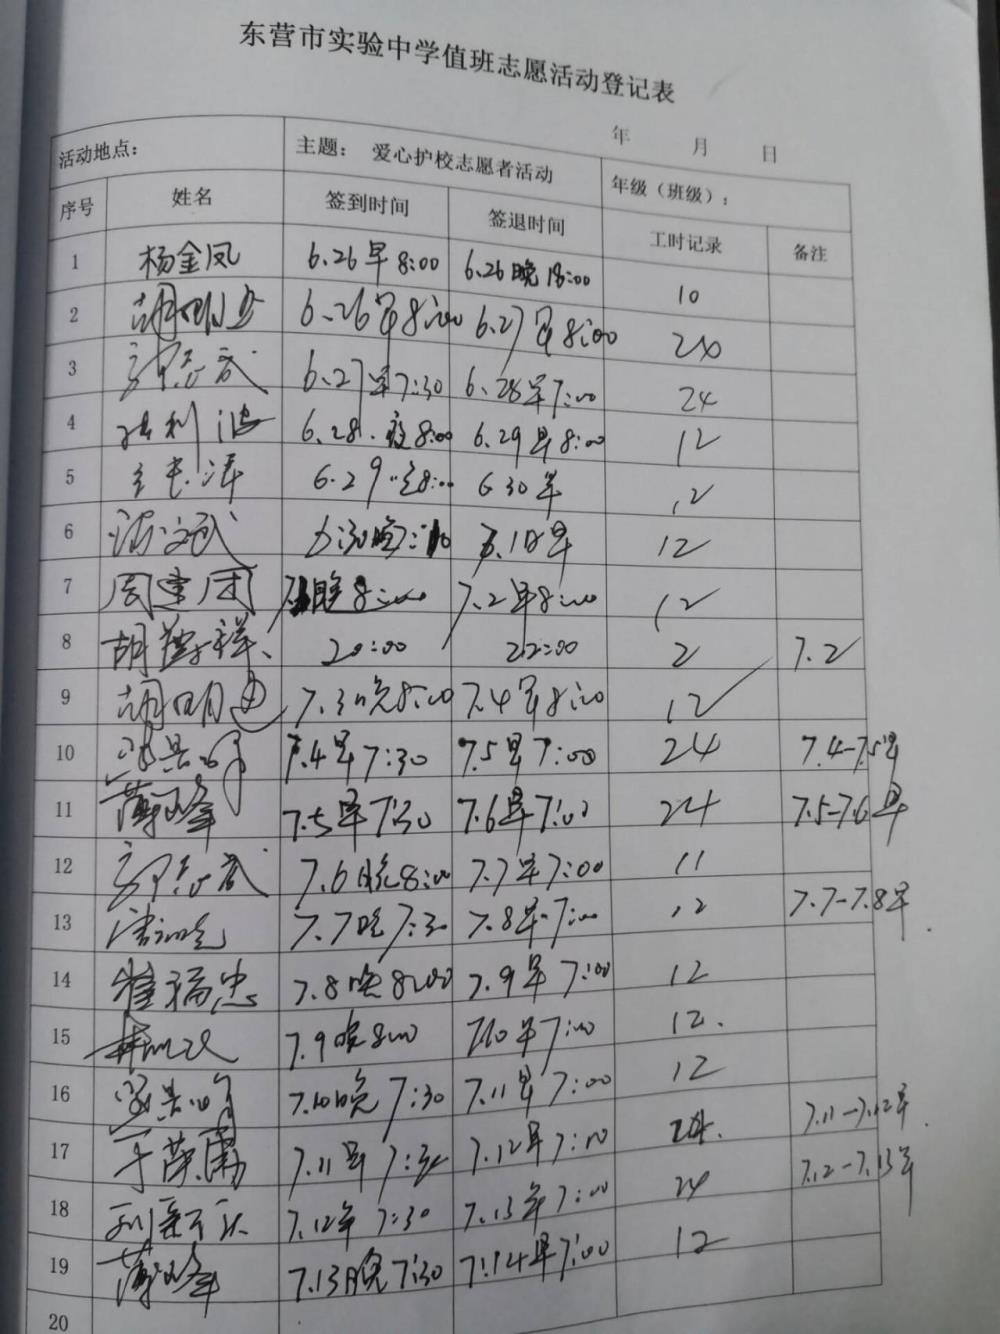 东营市实验中学值班志愿活动登记表
年 月 日
活动地点： 主题： 爱心护校志愿者活动 年级（班级）：
序号 姓名 签到时间 签退时间 工时记录 备注
1 杨金凤 6.26早8:00 6.26晚18:00 10
2 胡明 6.26早8:00 6.27早8:00 24
3 郭志武 6.27早7:30 6.28早7:00 24
4 利 6.28. 8:00 6.29早8:00 12
5 6.29 8:00 6 30早 12
6 文武 6.30晚 7.1日早 12
7 周建团 7.1晚8:00 7.2早8:00 12
8 胡 祥 20:00 22:00 2 7.2
9 胡明 7.3晚8:00 7.4早8:00 12
10 7.4早7:30 7.5早7:00 24 7.4-7.5早
11 薄 峰 7.5早7:30 7.6早7:00 24 7.5-7.6早
12 郭志武 7.6晚8:00 7.7早7:00 11
13 7.7晚7:30 7.8早7:00 12 7.7-7.8早
14 崔福忠 7.8晚8:00 7.9早7:00 12
15 7.9晚8:00 7.10早7:00 12.
16 7.10晚7:30 7.11早7:00 12
17 于 7.11早7:30 7.12早7:00 24. 7.11-7.12早
18 刘新 7.12早7:30 7.13早7:00 24 7.12-7.13早
19 薄 峰 7.13晚7:30 7.14早7:00 12
20